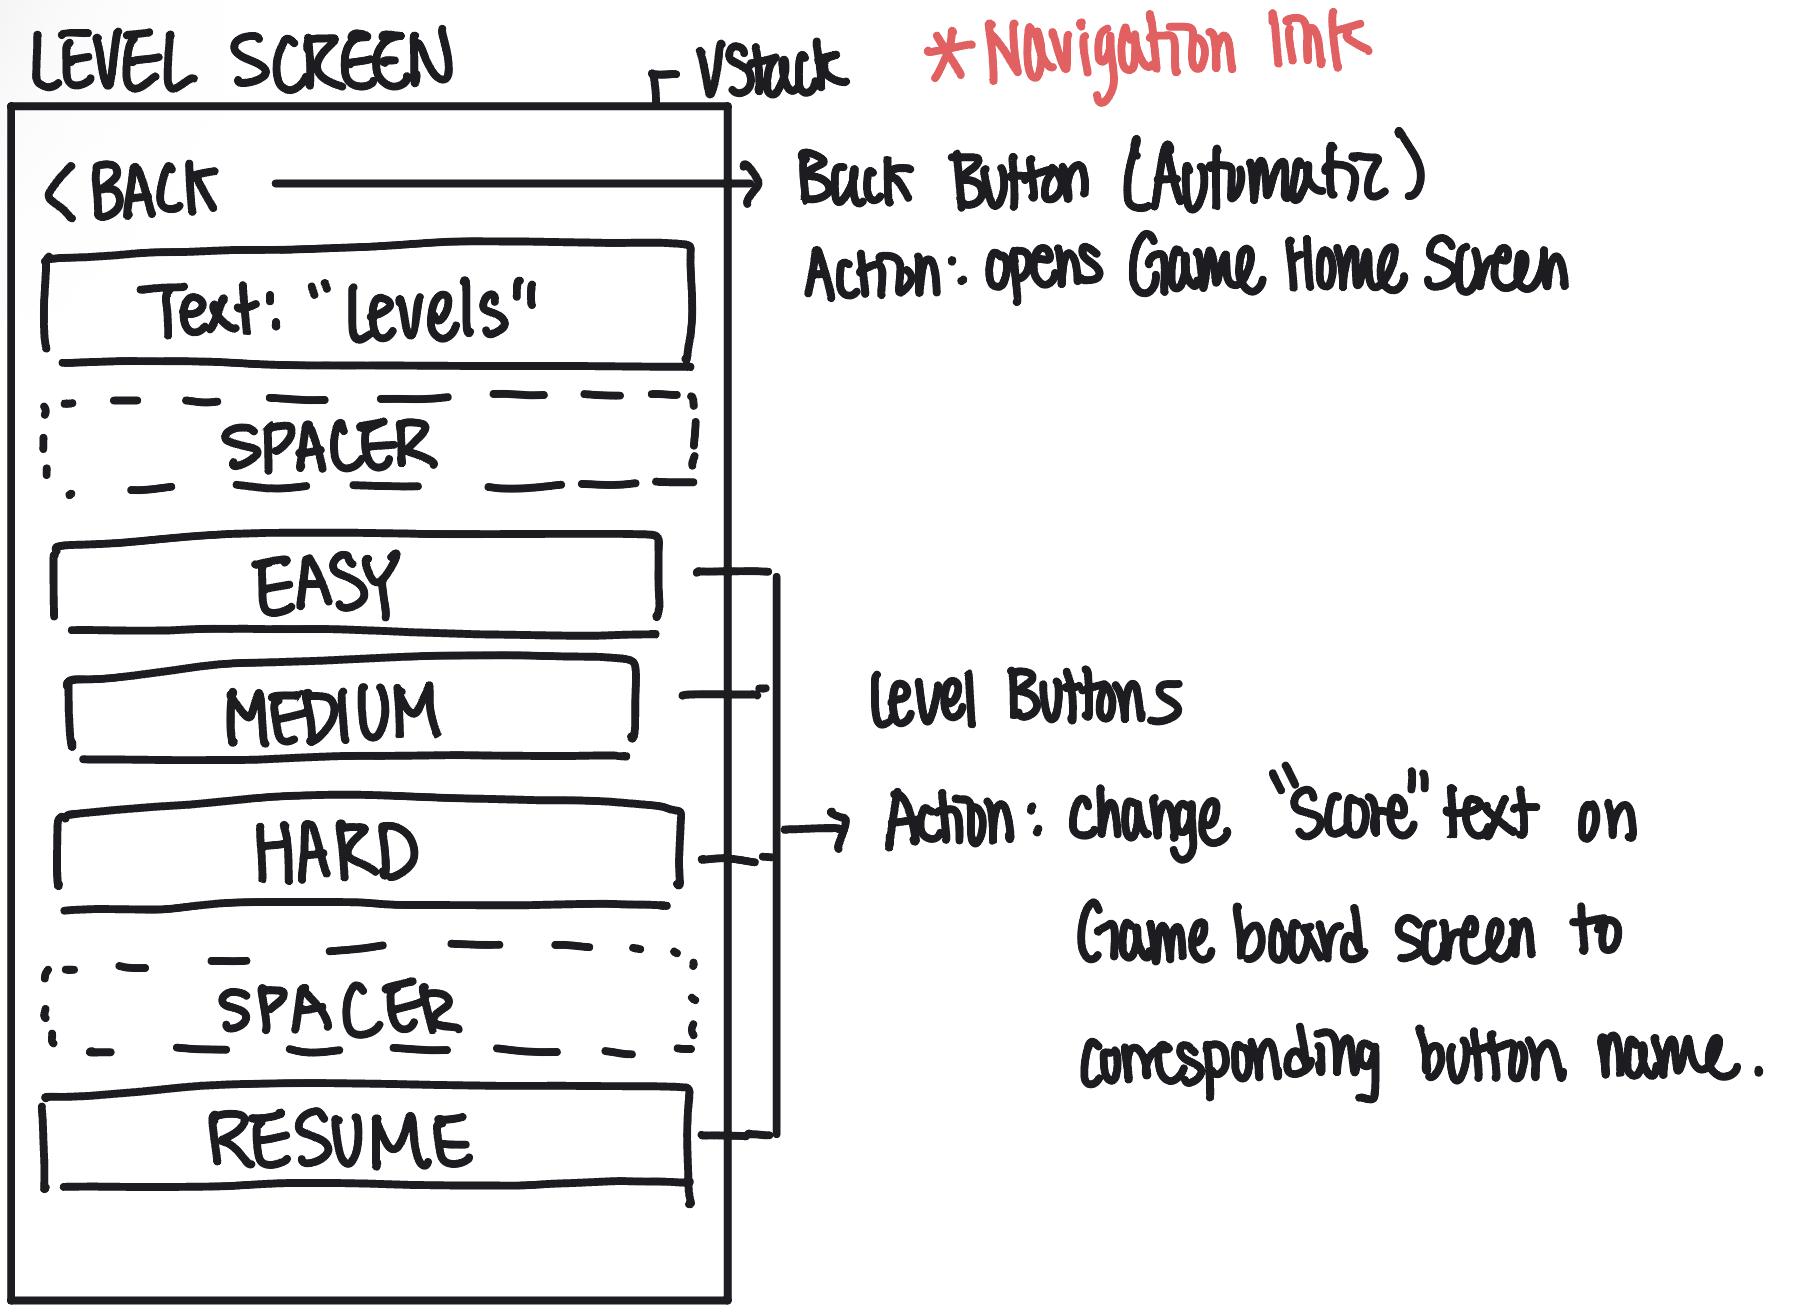 LEVEL SCREEN
VStack
*Navigation link
<BACK
Back Button (Automatic)
Action: opens Game Home Screen
Text: "Levels"
SPACER
EASY
MEDIUM
Level Buttons
HARD
Action: change "Score" text on
Game board screen to
corresponding button name.
SPACER
RESUME